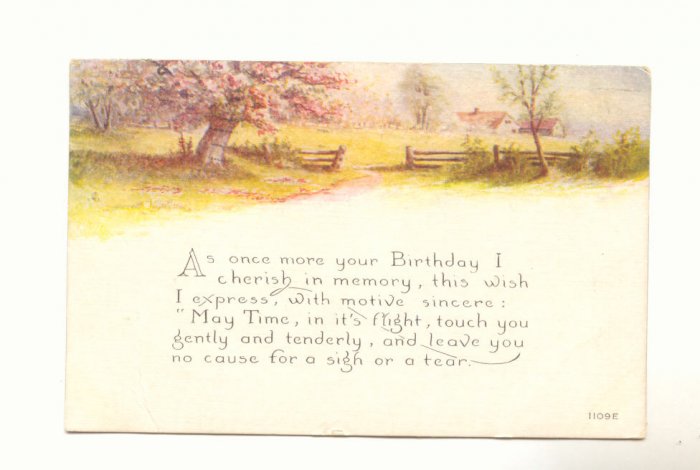 As once more your Birthday I
cherish in memory, this wish
I express, with motive sincere:
"May Time, in it's flight, touch you
gently and tenderly, and leave you
no cause for a sigh or a tear.
1109E